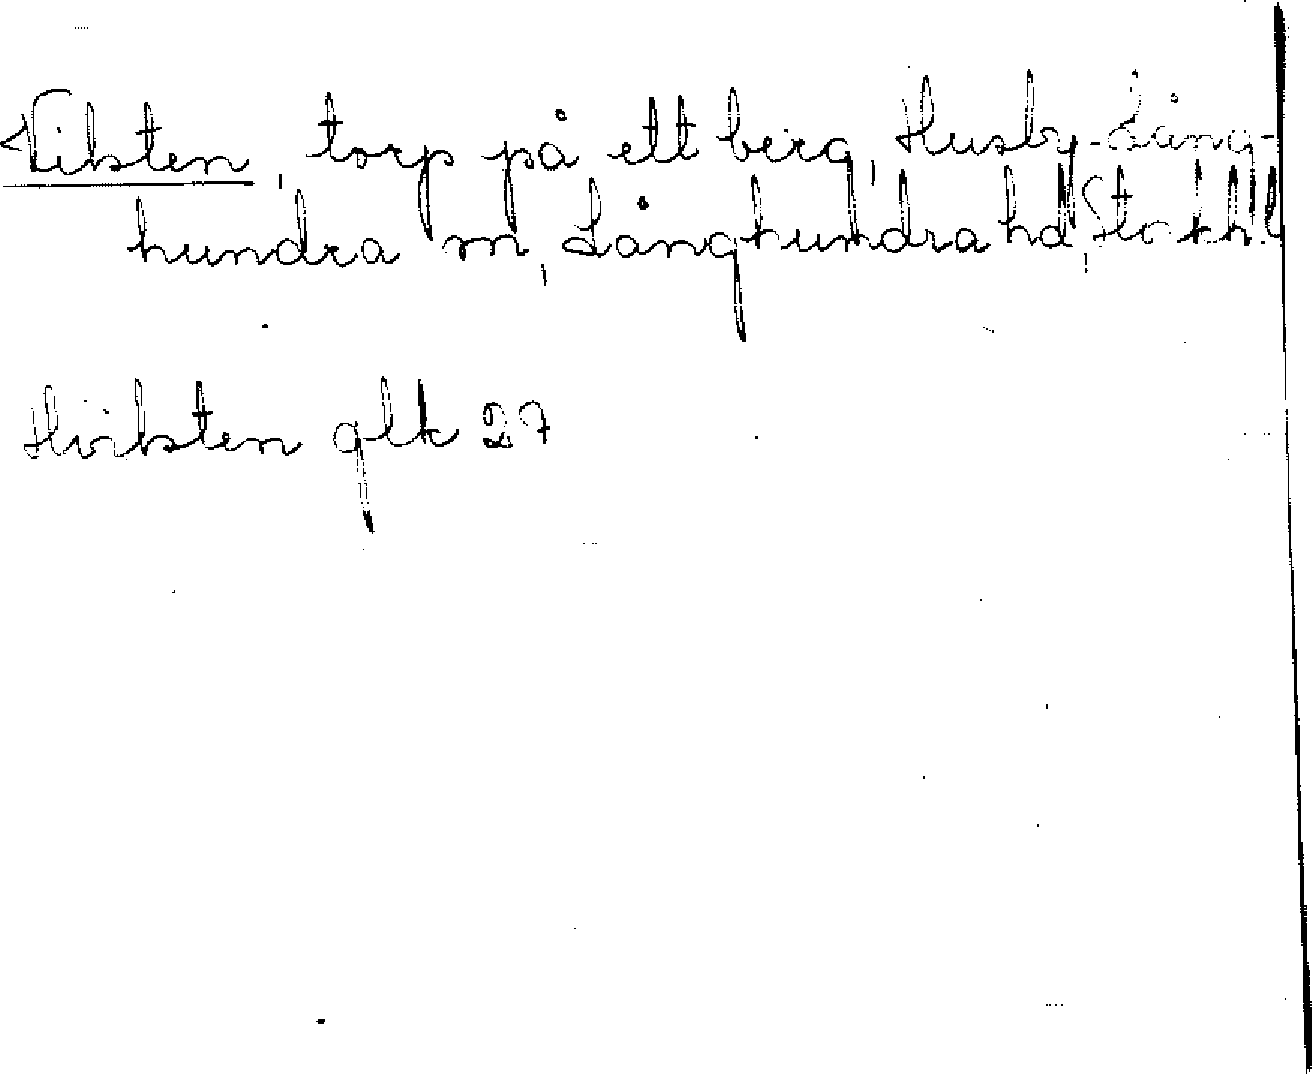 Vibsten, torp på ett berg, Husby-Lång-
hundra sn, Långhundra hd, Stockh. l
Hvibsten glk 27